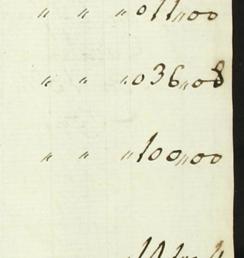 " " " 011"00
" " " 036"08
" " " 100"00